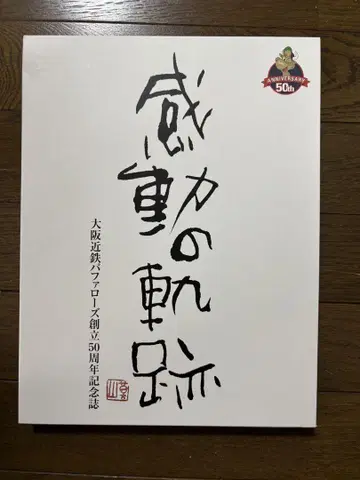 ANNIVERSARY
50th
感動の軌跡
大阪近鉄バファローズ創立50周年記念誌